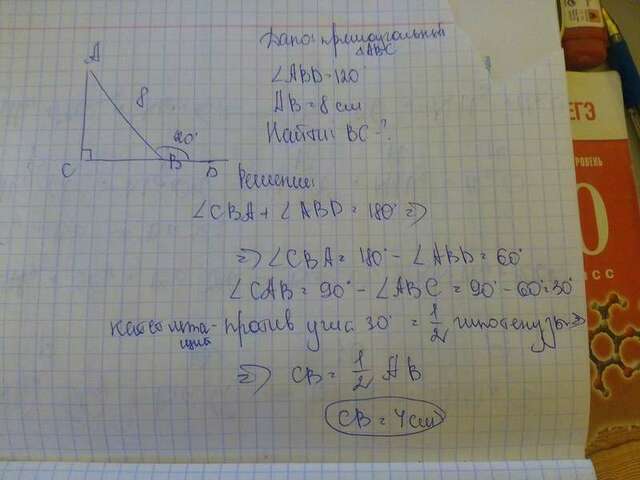 Дано: прямоугольный
△ABC
∠ABD=120°
AB=8см
Найти: BC-?
A
8
120°
C
B
D
Решение:
∠CBA+∠ABD=180°⇒
⇒∠CBA=180°-∠ABD=60°
∠CAB=90°-∠ABC=90°-60°=30°
катет лежащий против угла 30° = 1/2 гипотенузы⇒
⇒ CB=1/2 AB
CB=4см
ЕГЭ
УРОВЕНЬ
0
ЛАСС